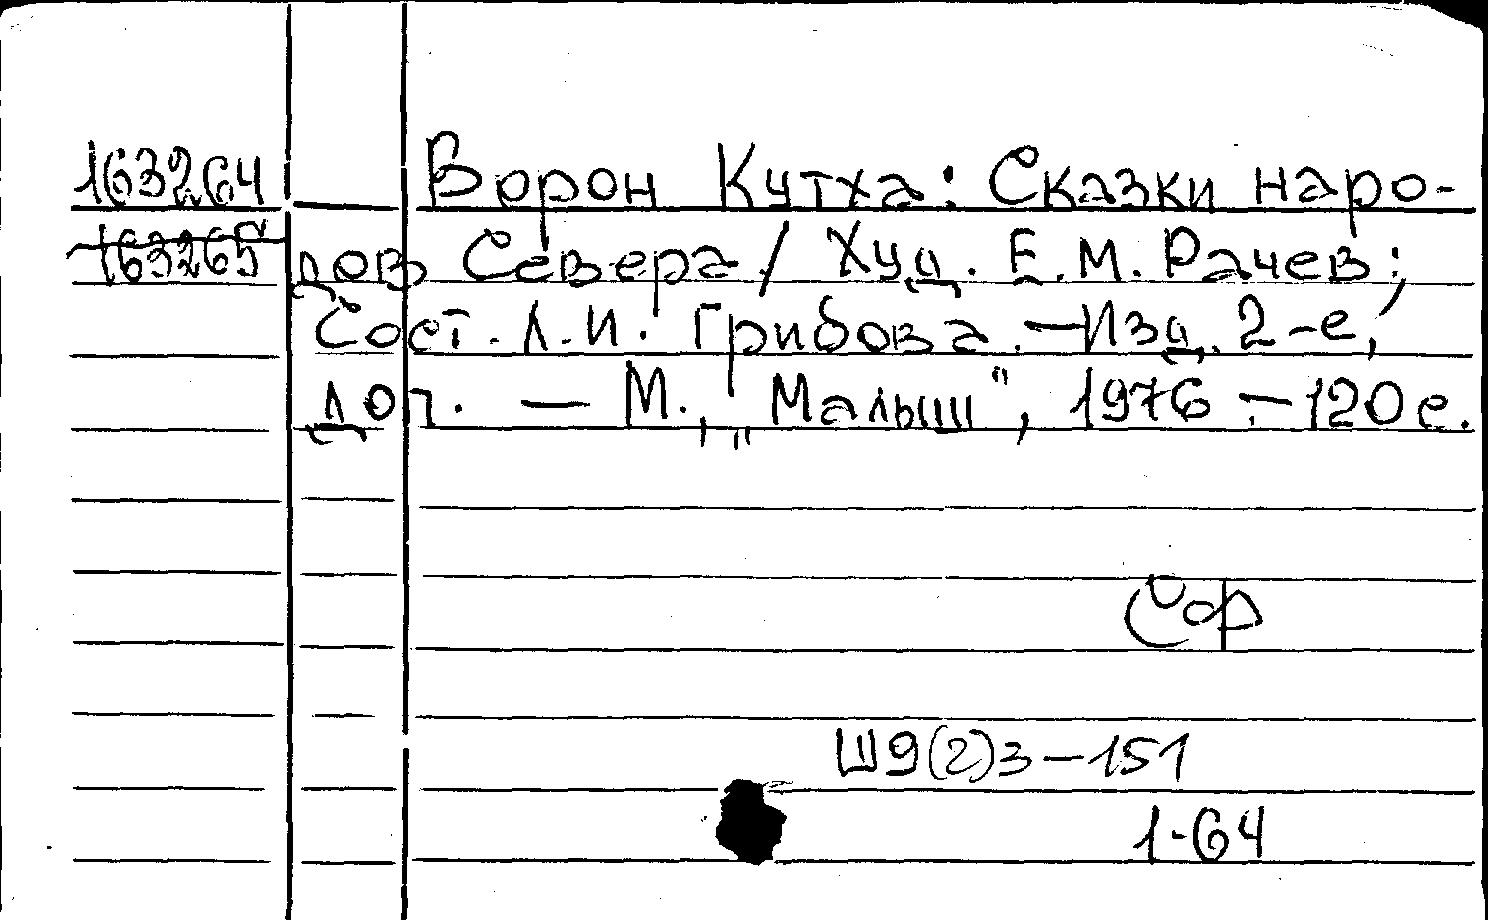 163264 Ворон Кутха: Сказки наро-
163265 дов Севера / Худ. Е.М. Рачев;
Сост. Л.И. Грибова. — Изд. 2-е,
доп. — М., „Малыш", 1976. — 120 с.
Ш9(2)3-151
1-64